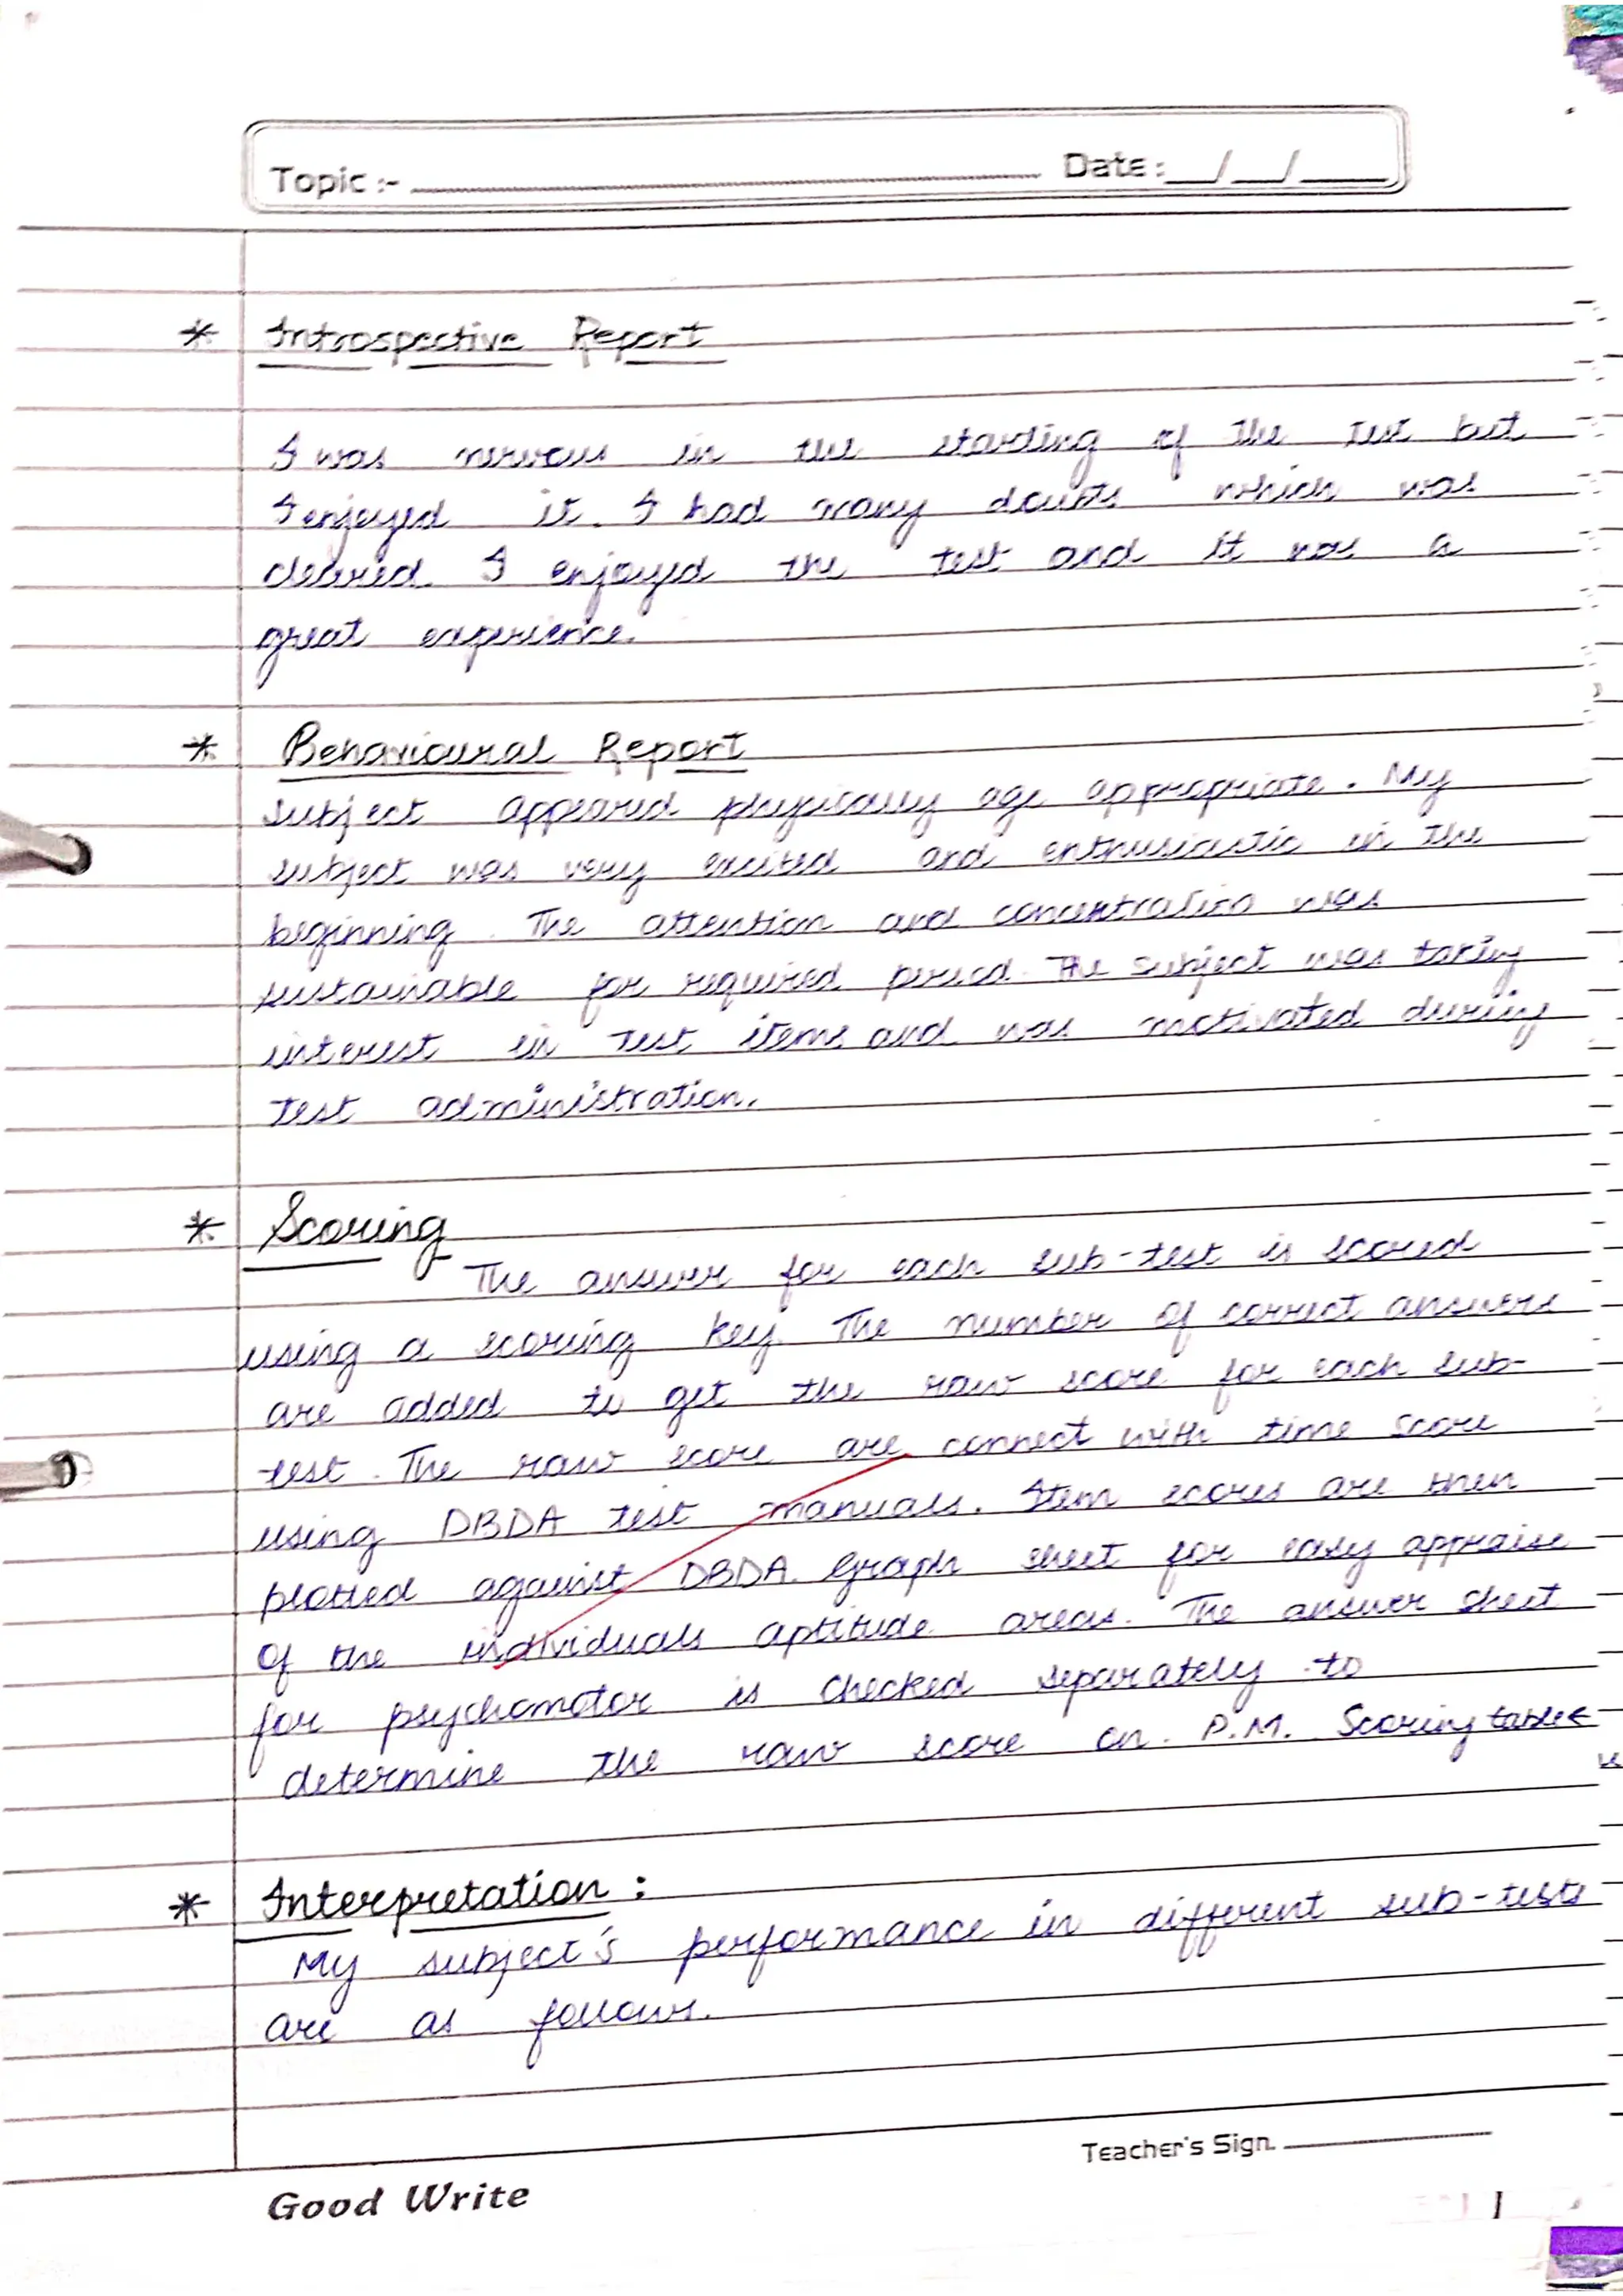 Topic :- Date : __/__/____
* Introspective Report
I was nervous in the starting of the test but
I enjoyed it. I had many doubts which was
cleared. I enjoyed the test and it was a
great experience.
* Behavioural Report
subject appeared physically age appropriate. My
subject was very excited and enthusiastic in the
beginning. The attention and concentration was
sustainable for required period. The subject was taking
interest in test items and was motivated during
test administration.
* Scoring
The answer for each sub-test is scored
using a scoring key. The number of correct answers
are added to get the raw score for each sub-
test. The raw score are connect with time score
using DBDA test manuals. Stem scores are then
plotted against DBDA. Graph sheet for easy appraise
of the individuals aptitude areas. The answer sheet
for psychomotor is checked separately to
determine the raw score on P.M. Scoring table
* Interpretation :
My subject's performance in different sub-tests
are as follows.
Teacher's Sign.
Good Write